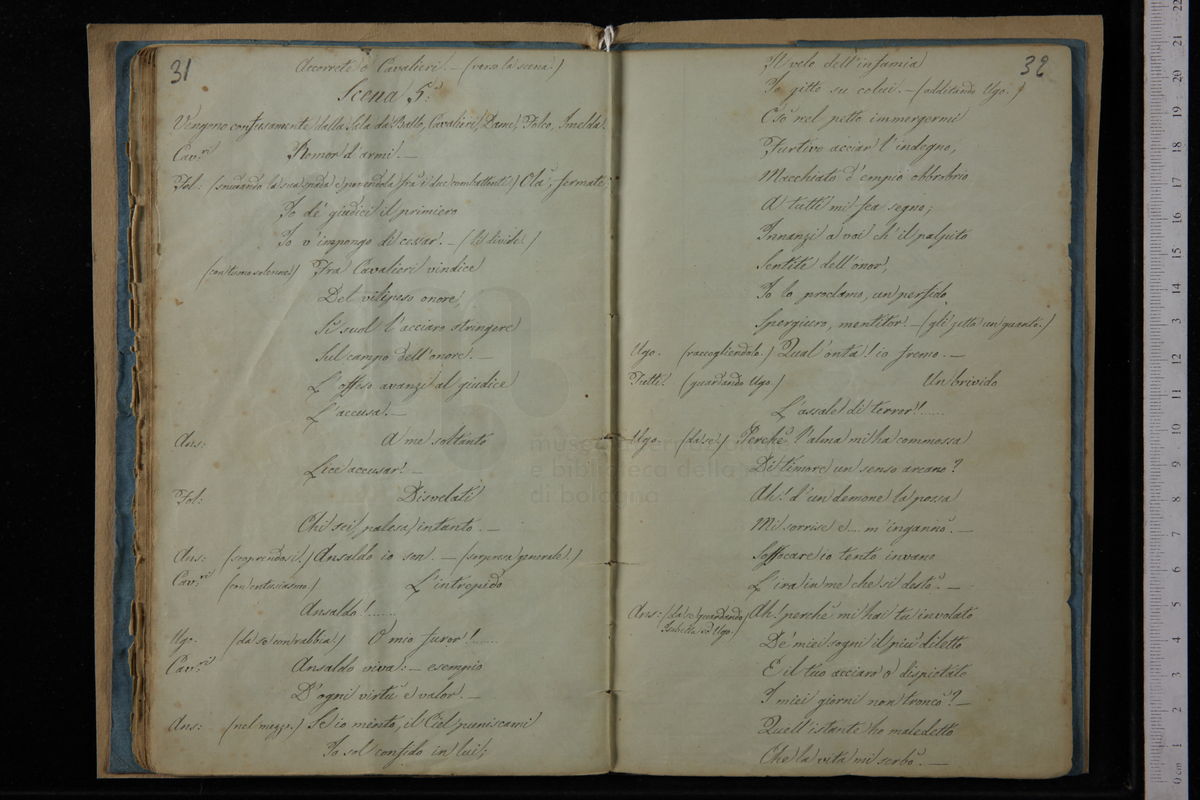 31
Accorrete o Cavalieri. — (verso la scena.)
Scena 5.ª
Vengono confusamente dalla Sala da Ballo, Cavalieri, Dame, Folco, Imelda.
Cav.ri Romor d'armi. —
Fol: (snudando la sua spada e ponendola fra i due combattenti) Olà, fermate;
Io de' giudici il primiero
Io v'impongo di cessar. — (li divide.)
(con tuono solenne.) Fra Cavalieri vindice
Del vilipeso onore,
Si suol l'acciaro stringere
Sul campo dell'onore. —
L'offeso avanzi al giudice
L'accusa. —
Ans: A me soltanto
Lice accusar. —
Fol: Disvelati
Chi sei, palesa intanto. —
Ans: (scoprendosi.) Ansaldo io son. — (sorpresa generale.)
Cav.ri (con entusiasmo) L'intrepido
Ansaldo!......
Ugo. (da se con rabbia.) O mio furor!!......
Cav.ri Ansaldo viva: — esempio
D'ogni virtù e valor. —
Ans: (nel mezzo.) Se io mento, il Ciel puniscami
Io sol confido in lui;
32
Il velo dell'infamia
Io gitto su colui. — (additando Ugo.)
Osò nel petto immergermi
Furtivo acciar l'indegno,
Macchiato d'empio obbrobrio
A tutti mi fea segno;
Innanzi a voi ch'il palpito
Sentite dell'onor,
Io lo proclamo, un perfido
Spergiuro, mentitor. — (gli getta un guanto.)
Ugo. (raccogliendolo.) Qual'onta!! io fremo. —
Tutti. (guardando Ugo.) Un brivido
L'assale di terror!......
Ugo. (da se.) Perchè l'alma mi ha commossa
Di timore un senso arcano?
Ah! d'un demone la possa
Mi sorrise e.... m'ingannò. —
Soffocare io tento invano
L'ira in me che si destò. —
Ans: (da se guardando Isabella ed Ugo.) Ah! perchè mi hai tu involato
De' miei sogni il più diletto
E il tuo acciaro o dispietato
I miei giorni non troncò? —
Quell'istante ho maledetto
Che la vita mi serbò. —
museo internazionale
e biblioteca della
di bologna